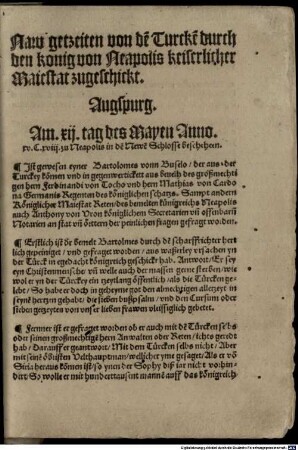 Naw getzeiten von dē Turckē durch
den konig von Neapolis keiserlicher
Maiestat zugeschickt.
Augspurg.
Am. xij. tag des Mayen Anno.
xv.C.xviij. zu Neapolis in dē Newē Schlosse beschehenn.
¶ Ist gewesen eyner Bartolomes vonn Buselo / der aus der
Turckey kömen vnd in gegenwertickett aus beuelh des großmechti
gen hern Ferdinandi von Tocho vnd hern Mathias von Cardo
na Germanis Regenten des königlichen scharz. Sampt andern
Königlicher Maiestat Reten / des bemelten königreichs Neapols
auch Anthony von Vron königlichen Secretarien vñ offenbarñ
Notarien an stat vñ örttern der peinlichen fragen gefragt worden.
¶ Erstlich ist dē bemelt Bartolmes durch dē scharffrichter hert
lich gepeiniget / vnd gefragt worden / aus waserley vrsachen yn
der Türck in egedacht königreich geschickt hab. Antwort / Er sey
eyn Christenmensche vñ welle auch der massen gerne sterben / wie
wol er yn der Türckey ein zeytlang öffentlich / als die Türcken ge
lebt / So hab er doch in geheyme got den almechtigen allezeyt in
seynē hertzen gehabt / die sieben bußpsalm / vnd den Cursum oder
sieben getzeytes von vnser lieben frawen vleissiglich gebetet.
¶ Ferner ist er gefraget worden ob er auch mit dē Türcken selbs
oder seinen großmechtigē hern Anwalten oder Reten / ichts geredt
hab / Darauff er geantwort / Mit dem Türcken selbs nicht / Aber
mit seinē öbristen Velthauptman / wellicher yme gesaget / Als er vō
Siria heraus kömen ist / so ynen der Sophy diß iar nicht vorhin-
dert / So wolle er mit hunderttausent mannē auff das königreich